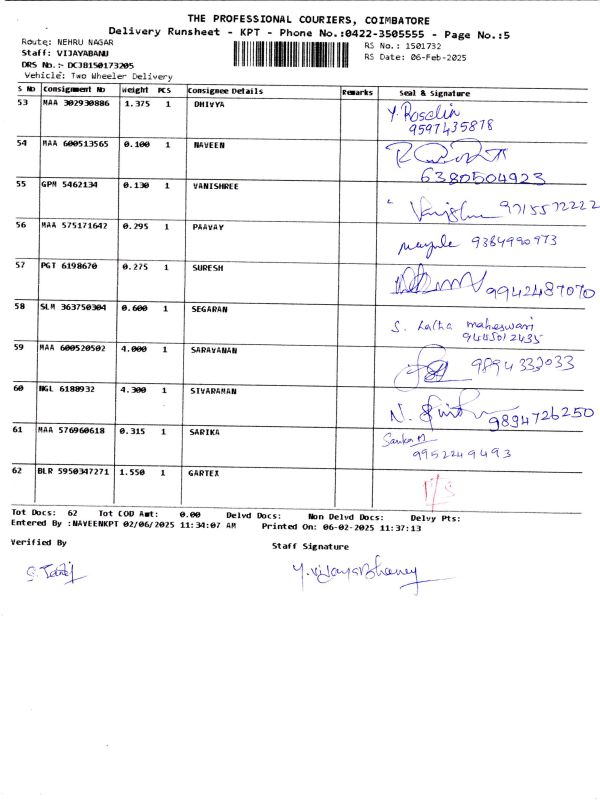 THE PROFESSIONAL COURIERS, COIMBATORE
Delivery Runsheet - KPT - Phone No.:0422-3505555 - Page No.:5
Route: NEHRU NAGAR RS No.: 1501732
Staff: VIJAYABANU RS Date: 06-Feb-2025
DRS No.:- DCJB150173205
Vehicle: Two Wheeler Delivery
S No Consignment No Weight PCS Consignee Details Remarks Seal & Signature
53 MAA 302930886 1.375 1 DHIVYA Y. Rosalin
9597435878
54 MAA 600513565 0.100 1 NAVEEN
6380504923
55 GPM 5462134 0.130 1 VANISHREE 9715572222
56 MAA 575171642 0.295 1 PAAVAY 9384990773
57 PGT 6198670 0.275 1 SURESH 9942487070
58 SLM 363750304 0.600 1 SEGARAN S. Latha maheswari
9445012435
59 MAA 600520502 4.000 1 SARAVANAN 9894333033
60 NGL 6180932 4.300 1 SIVARAMAN 9894726250
61 MAA 576960618 0.315 1 SARIKA Sarika M
9952249493
62 BLR 5950347271 1.550 1 GARTEX
Tot Docs: 62 Tot COD Amt: 0.00 Delvd Docs: Non Delvd Docs: Delvy Pts:
Entered By :NAVEENKPT 02/06/2025 11:34:07 AM Printed On: 06-02-2025 11:37:13
Verified By Staff Signature